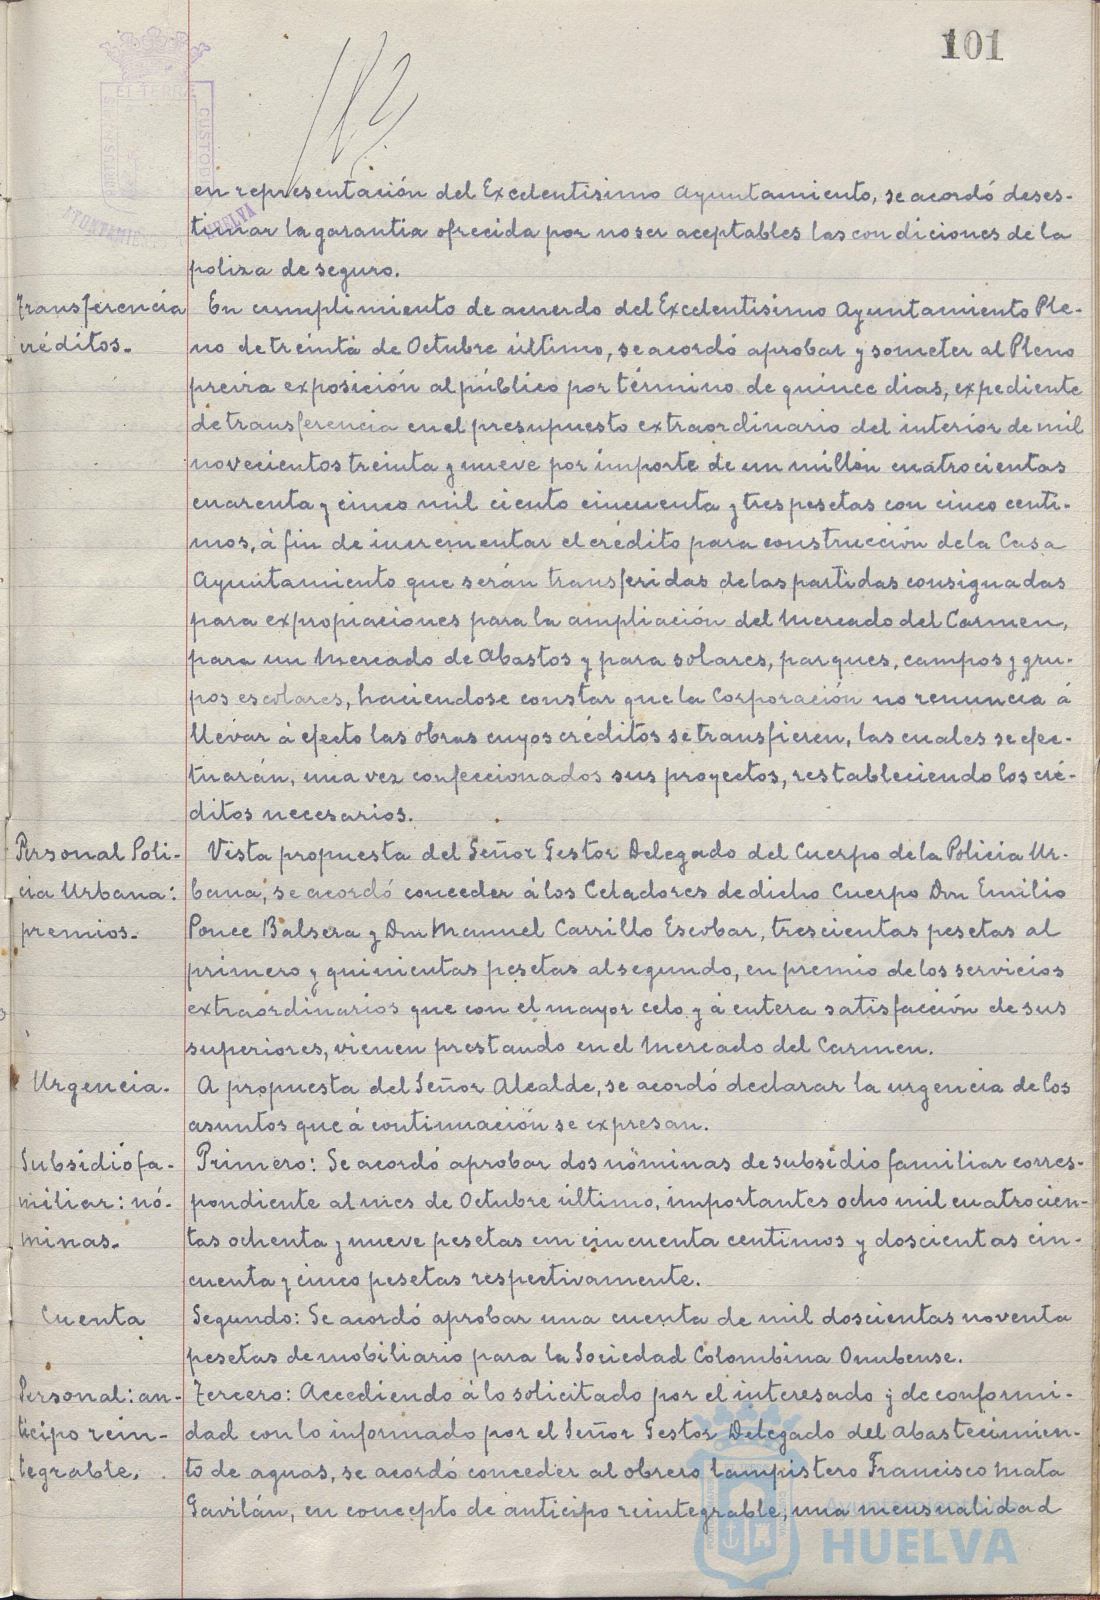 101
en representación del Excelentisimo Ayuntamiento, se acordó deses-
timar la garantia ofrecida por no ser aceptables las condiciones de la
poliza de seguro.
Transferencia
créditos.
En cumplimiento de acuerdo del Excelentisimo Ayuntamiento Ple-
no de treinta de Octubre último, se acordó aprobar y someter al Pleno
previa exposición al público por término de quince dias, expediente
de transferencia en el presupuesto extraordinario del interior de mil
novecientos treinta y nueve por importe de un millón cuatrocientas
cuarenta y cinco mil ciento cincuenta y tres pesetas con cinco centi-
mos, á fin de incrementar el crédito para construcción de la Casa
Ayuntamiento que serán transferidas de las partidas consignadas
para expropiaciones para la ampliación del Mercado del Carmen,
para un Mercado de Abastos y para solares, parques, campos y gru-
pos escolares, haciendose constar que la Corporación no renuncia á
llevar á efecto las obras cuyos créditos se transfieren, las cuales se efec-
tuarán, una vez confeccionados sus proyectos, restableciendo los cré-
ditos necesarios.
Personal Poli-
cia Urbana:
premios.
Vista propuesta del Señor Gestor Delegado del Cuerpo de la Policia Ur-
bana, se acordó conceder á los Celadores de dicho Cuerpo Don Emilio
Ponce Balsera y Don Manuel Carrillo Escobar, trescientas pesetas al
primero y quinientas pesetas al segundo, en premio de los servicios
extraordinarios que con el mayor celo y á entera satisfacción de sus
superiores, vienen prestando en el Mercado del Carmen.
Urgencia.
A propuesta del Señor Alcalde, se acordó declarar la urgencia de los
asuntos que á continuación se expresan.
Subsidio fa-
miliar: nó-
minas.
Primero: Se acordó aprobar dos nóminas de subsidio familiar corres-
pondiente al mes de Octubre último, importantes ocho mil cuatrocien-
tas ochenta y nueve pesetas con cincuenta centimos y doscientas cin-
cuenta y cinco pesetas respectivamente.
Cuenta
Segundo: Se acordó aprobar una cuenta de mil doscientas noventa
pesetas de mobiliario para la Sociedad Colombina Onubense.
Personal: an-
ticipo rein-
tegrable.
Tercero: Accediendo á lo solicitado por el interesado y de conformi-
dad con lo informado por el Señor Gestor Delegado del abastecimien-
to de aguas, se acordó conceder al obrero lampistero Francisco Mata
Gavilán, en concepto de anticipo reintegrable, una mensualidad
Ayuntamiento de
HUELVA